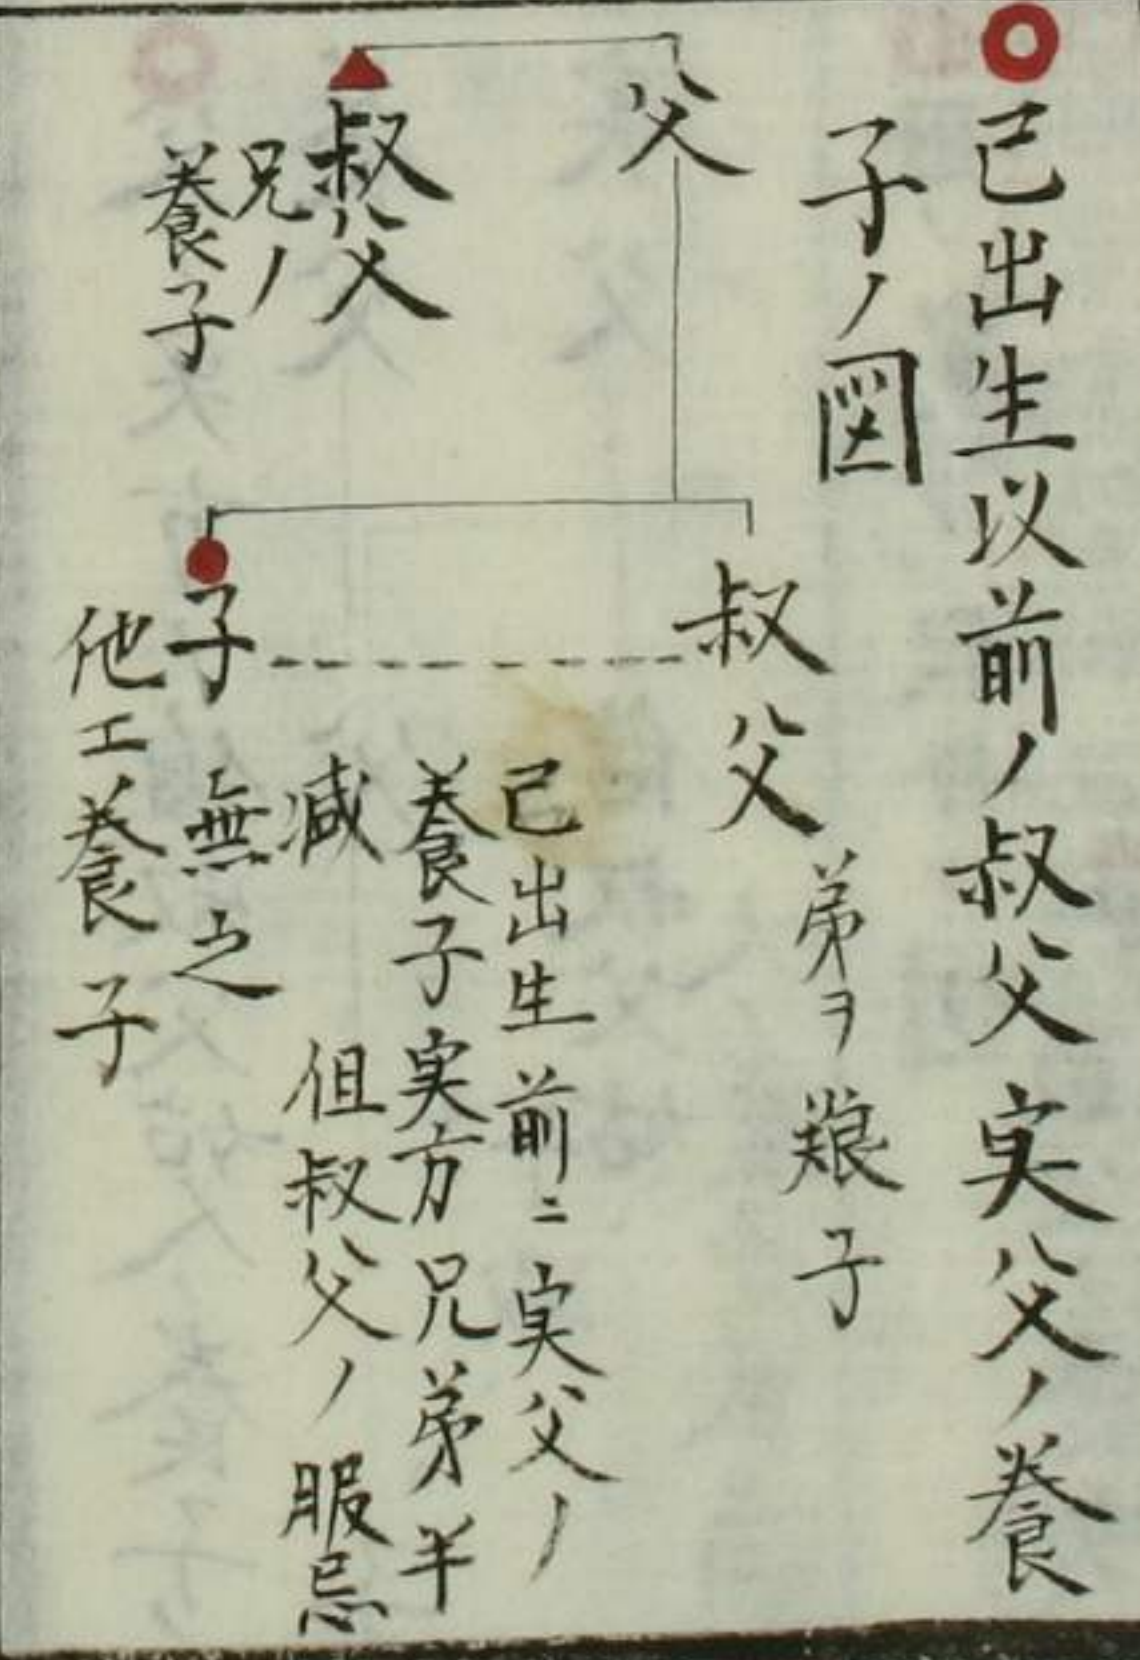 己出生以前ノ叔父実父ノ養
子ノ図
父
叔父
兄ノ
養子
叔父
弟ヲ
子
己出生前ニ実父ノ
養子実方兄弟半
減 但叔父ノ服忌
無之
子
他エ養子